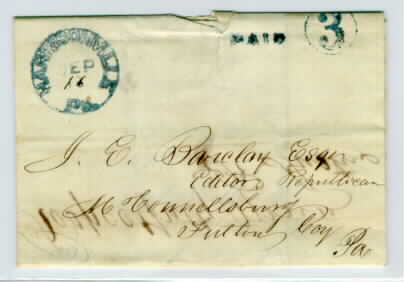 PAID
3
SEP
16
PA
J. E. Barclay Esqr
Editor Republican
McConnellsburg
Fulton Coy
Pa